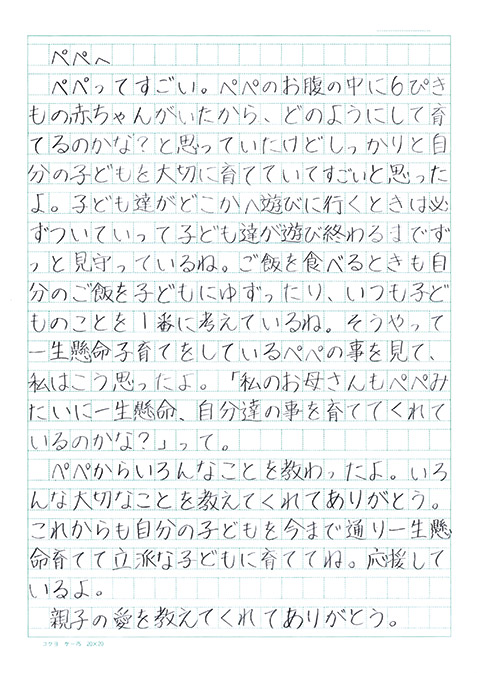 ペペへ
ペペってすごい。ペペのお腹の中に6ぴき
もの赤ちゃんがいたから、どのようにして育
てるのかな？と思っていたけどしっかりと自
分の子どもを大切に育てていてすごいと思った
よ。子ども達がどこかへ遊びに行くときは必
ずついていって子ども達が遊び終わるまでず
っと見守っているね。ご飯を食べるときも自
分のご飯を子どもにゆずったり、いつも子ど
ものことを1番に考えているね。そうやって
一生懸命子育てをしているペペの事を見て、
私はこう思ったよ。「私のお母さんもペペみ
たいに一生懸命、自分達の事を育ててくれて
いるのかな？」って。
ペペからいろんなことを教わったよ。いろ
んな大切なことを教えてくれてありがとう。
これからも自分の子どもを今まで通り一生懸
命育てて立派な子どもに育ててね。応援して
いるよ。
親子の愛を教えてくれてありがとう。
コクヨ ケ-75 20×20